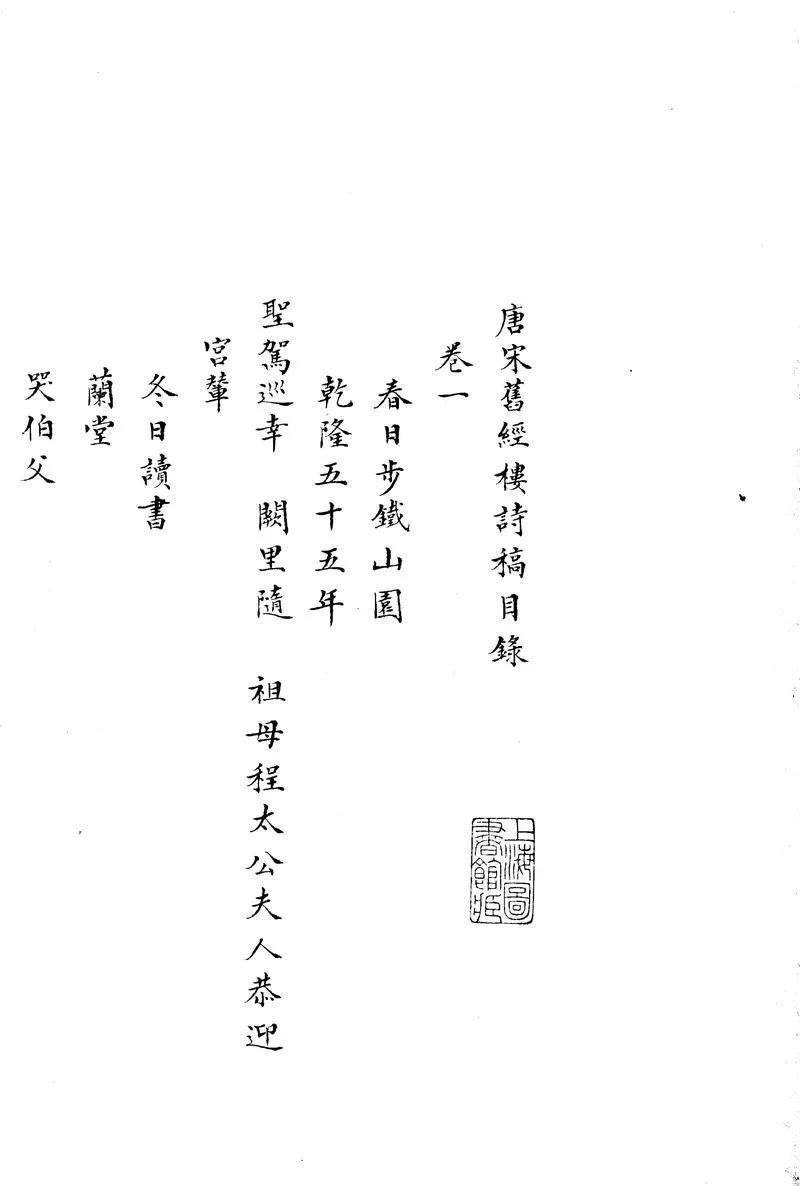 唐宋舊經樓詩稿目錄
卷一
春日步鐵山園
乾隆五十五年
聖駕巡幸 闕里隨 祖母程太公夫人恭迎
宮輦
冬日讀書
蘭堂
哭伯父
上海圖書館藏